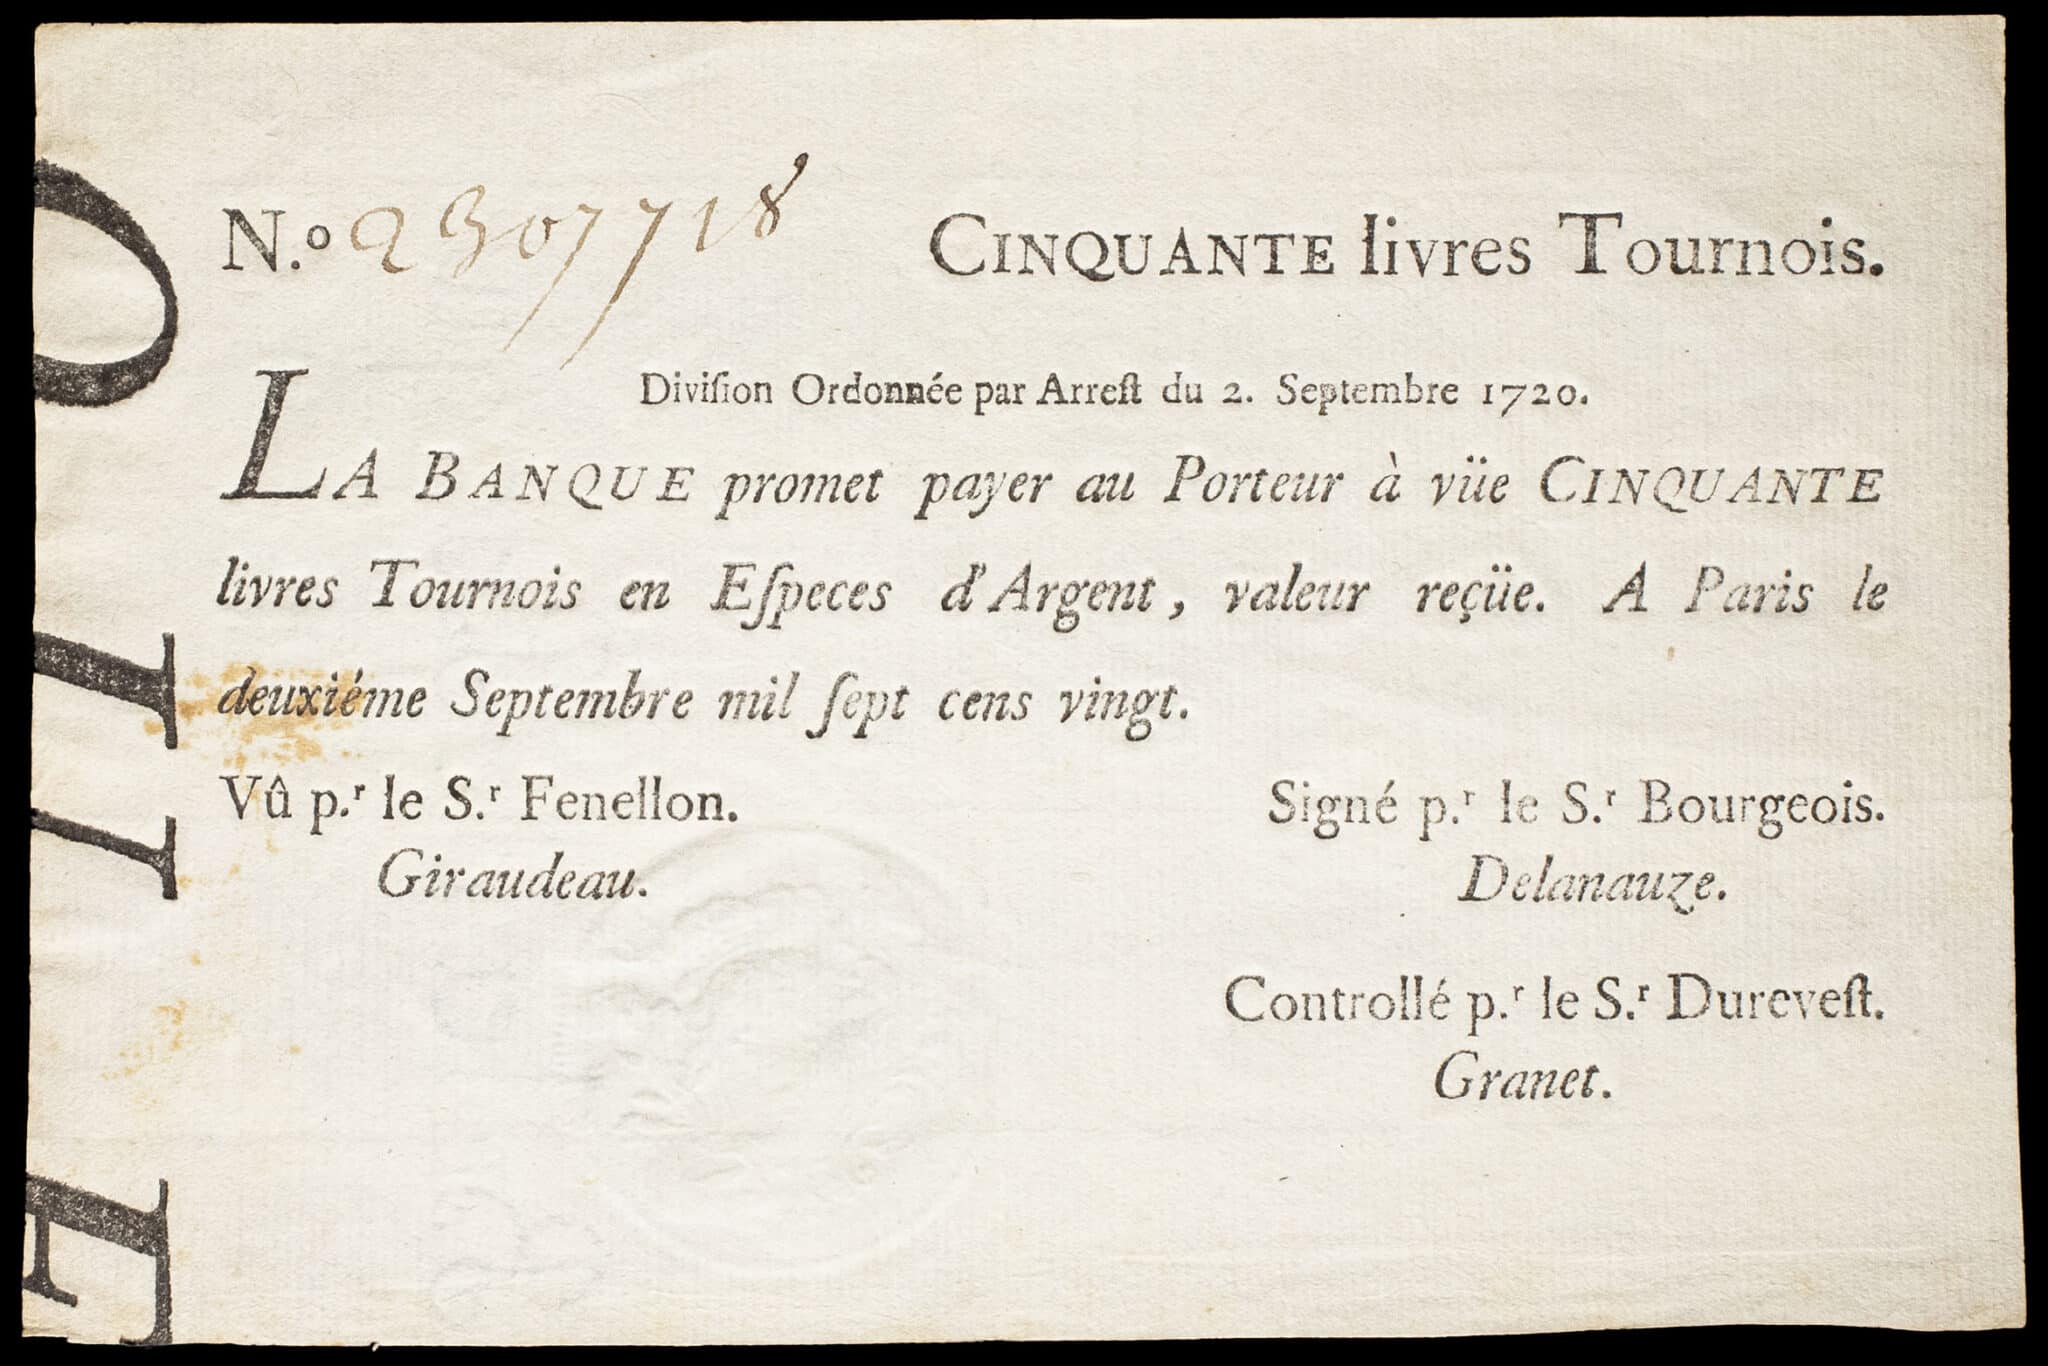 N.º 2307718 CINQUANTE livres Tournois.
Diviſion Ordonnée par Arreſt du 2. Septembre 1720.
LA BANQUE promet payer au Porteur à vüe CINQUANTE
livres Tournois en Eſpeces d'Argent, valeur reçüe. A Paris le
deuxiéme Septembre mil ſept cens vingt.
Vû p.r le S.r Fenellon. Signé p.r le S.r Bourgeois.
Giraudeau. Delanauze.
Controllé p.r le S.r Dureveſt.
Granet.